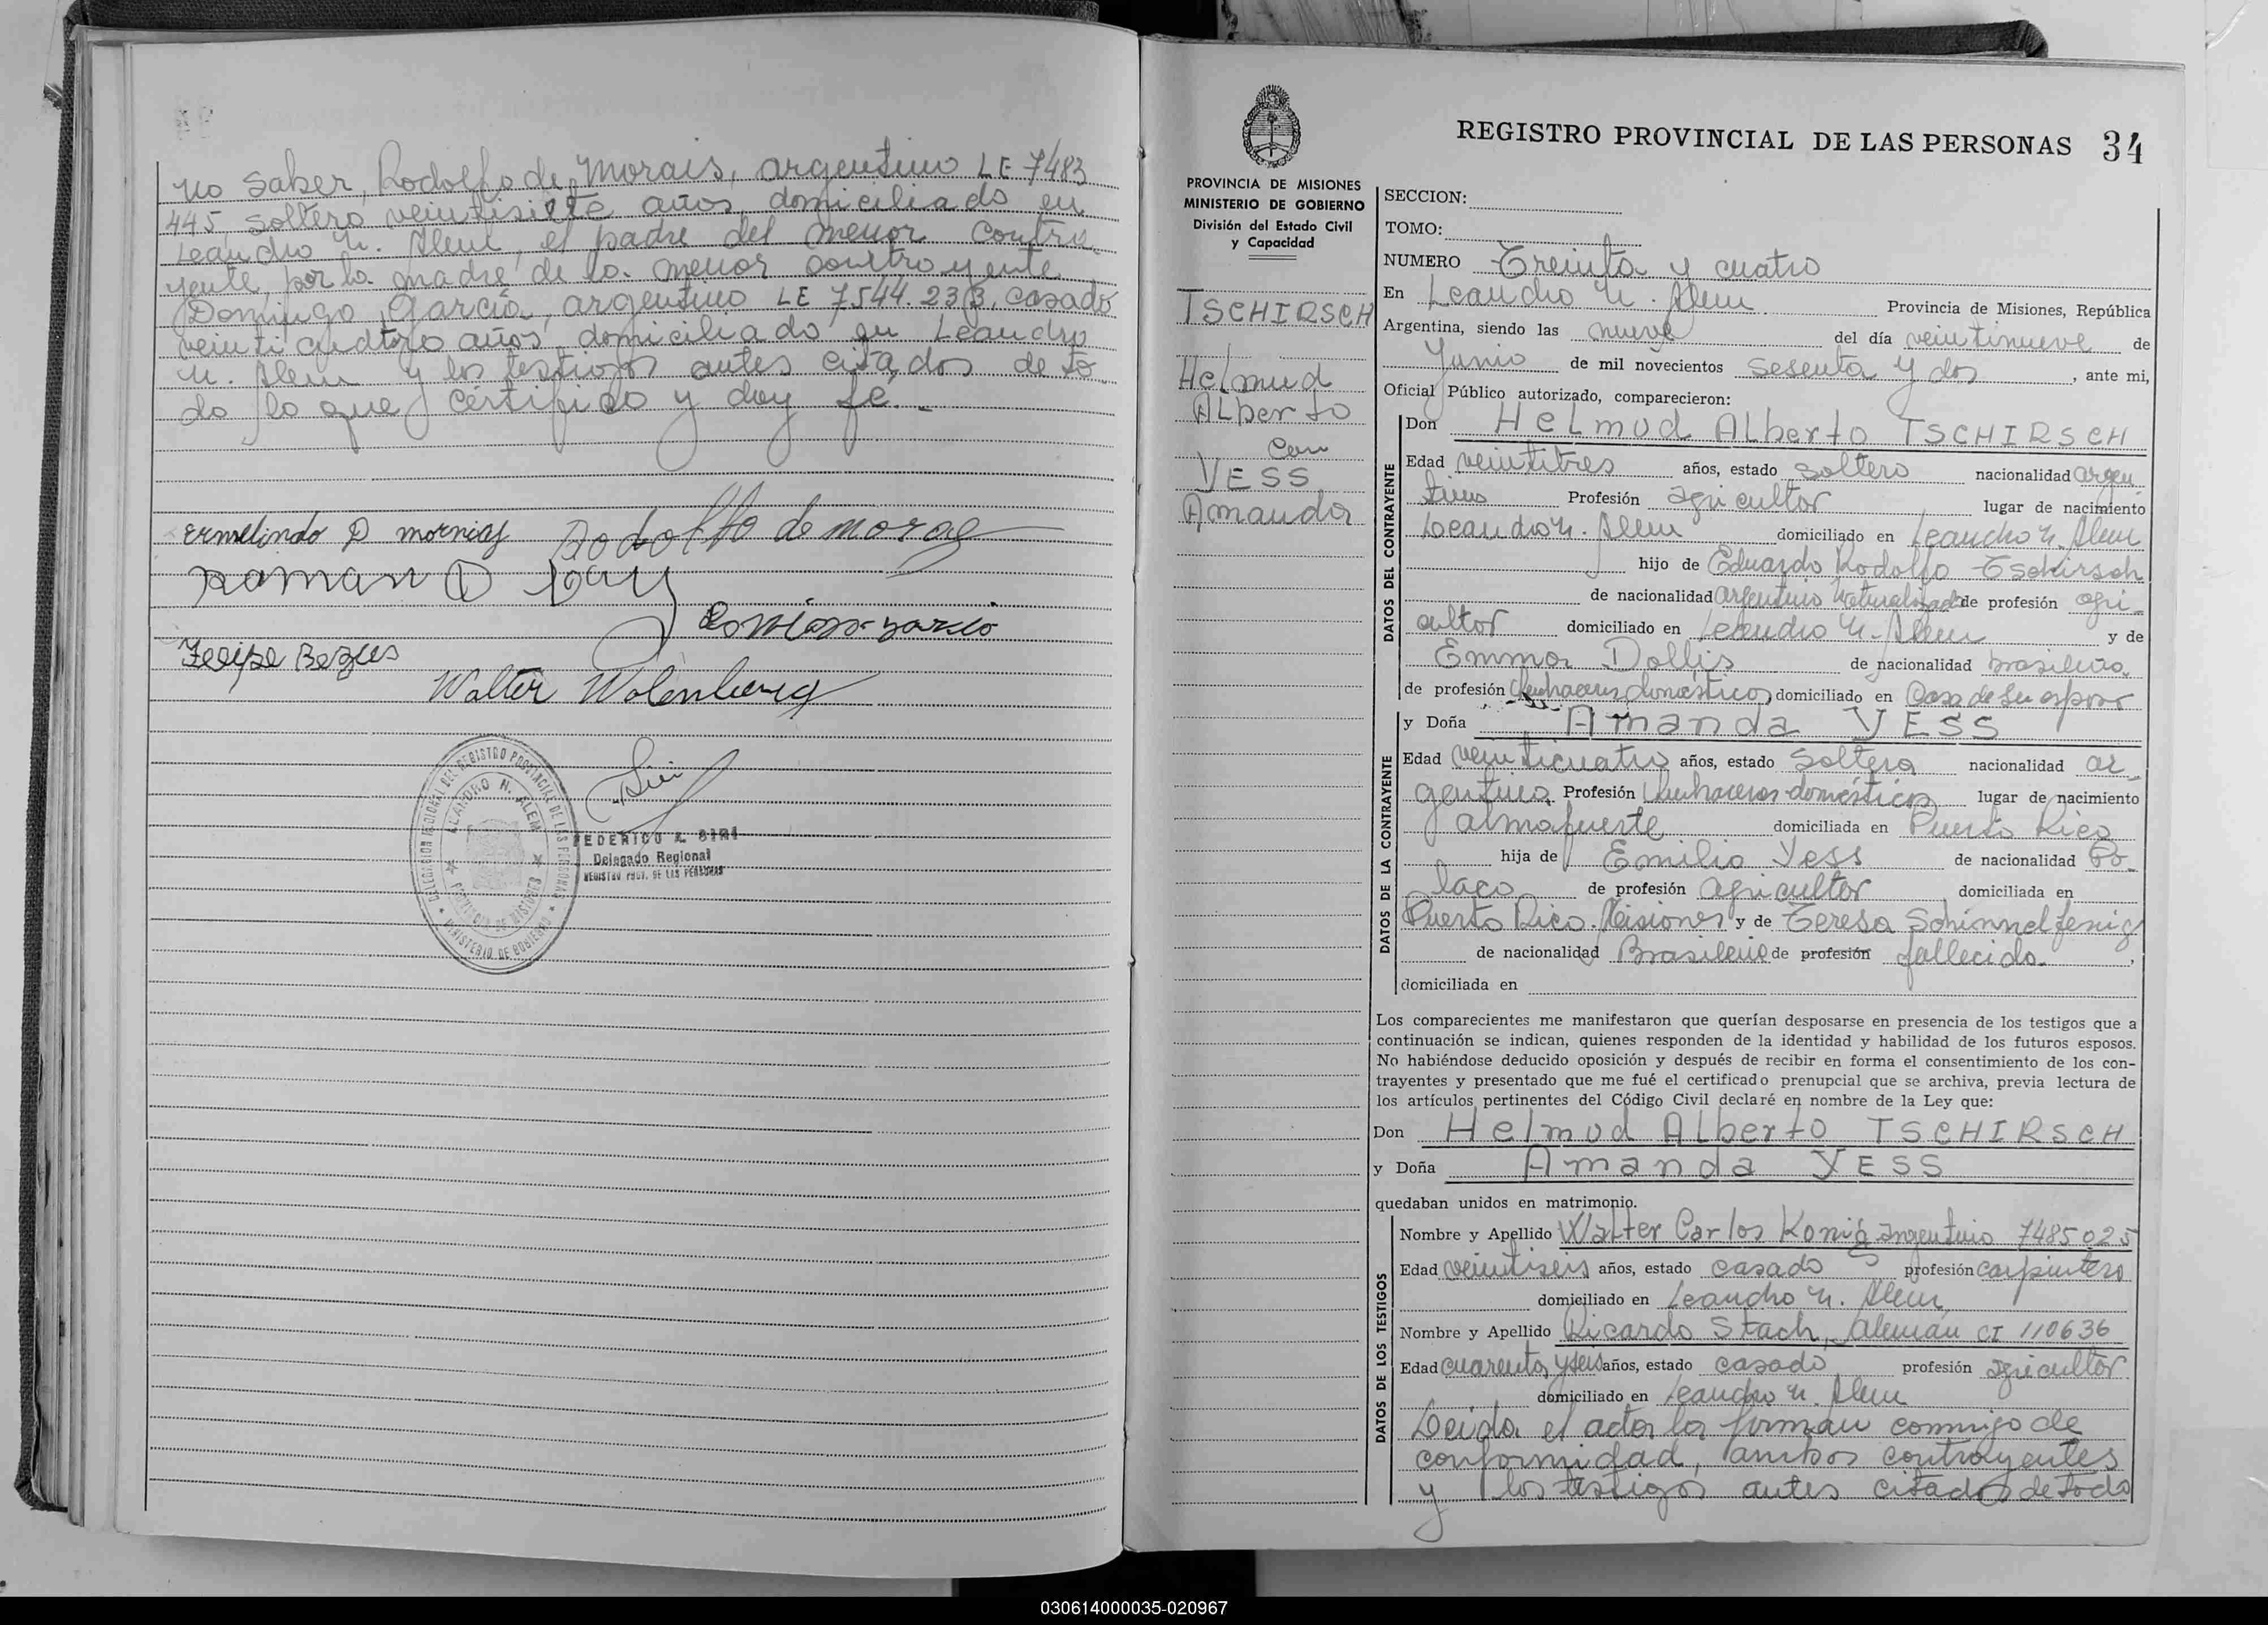 no saber, Rodolfo de Morais, argentino LE 7483
445 soltero veintisiete años domiciliado en
Leandro N. Alem, el padre del menor contra-
yente, por la madre de la menor contrayente
Domingo García, argentino LE 7544.233, casado
veinticuatro años domiciliado en Leandro
N. Alem y los testigos antes citados de to-
do lo que certifico y doy fé.-
Ermelindo D
Rodolffo de morae
Roman D
Felipe Bezus
Walter
DELEGACION REGIONAL DEL REGISTRO PROVINCIAL DE LAS PERSONAS
LEANDRO N. ALEM
PROVINCIA DE MISIONES
MINISTERIO DE GOBIERNO
FEDERICO A. SIRI
Delegado Regional
REGISTRO PROV. DE LAS PERSONAS
REGISTRO PROVINCIAL DE LAS PERSONAS 34
PROVINCIA DE MISIONES
MINISTERIO DE GOBIERNO
División del Estado Civil
y Capacidad
TSCHIRSCH
Helmud
Alberto
con
YESS
Amanda
SECCION:
TOMO:
NUMERO Treinta y cuatro
En Leandro N. Alem Provincia de Misiones, República
Argentina, siendo las nueve del día veintinueve de
Junio de mil novecientos sesenta y dos, ante mi,
Oficial Público autorizado, comparecieron:
DATOS DEL CONTRAYENTE
Don Helmud Alberto TSCHIRSCH
Edad veintitres años, estado soltero nacionalidad argen-
tino Profesión agricultor lugar de nacimiento
Leandro N. Alem domiciliado en Leandro N. Alem
hijo de Eduardo Rodolfo Tschirsch
de nacionalidad argentino naturalizado de profesión agri-
cultor domiciliado en Leandro N. Alem y de
Emma Dollis de nacionalidad brasileña
de profesión Quehaceres domésticos domiciliado en Casa de su esposo
DATOS DE LA CONTRAYENTE
y Doña Amanda YESS
Edad veinticuatro años, estado soltera nacionalidad ar-
gentina Profesión Quehaceres domésticos lugar de nacimiento
almafuerte domiciliada en Puerto Rico
hija de Emilio Yess de nacionalidad Po-
laco de profesión agricultor domiciliada en
Puerto Rico. Misiones y de Teresa Schimnelfenig
de nacionalidad Brasileña de profesión fallecida.
domiciliada en
Los comparecientes me manifestaron que querían desposarse en presencia de los testigos que a
continuación se indican, quienes responden de la identidad y habilidad de los futuros esposos.
No habiéndose deducido oposición y después de recibir en forma el consentimiento de los con-
trayentes y presentado que me fué el certificado prenupcial que se archiva, previa lectura de
los artículos pertinentes del Código Civil declaré en nombre de la Ley que:
Don Helmud Alberto TSCHIRSCH
y Doña Amanda YESS
quedaban unidos en matrimonio.
DATOS DE LOS TESTIGOS
Nombre y Apellido Walter Carlos Konig argentino 7485025
Edad veintiseis años, estado casado profesión carpintero
domiciliado en Leandro N. Alem
Nombre y Apellido Ricardo Stach, Alemán CI 110636
Edad cuarenta y seis años, estado casado profesión agricultor
domiciliado en Leandro N. Alem
Leida el acta la firman conmigo de
conformidad, ambos contrayentes
y los testigos antes citados de todo
030614000035-020967